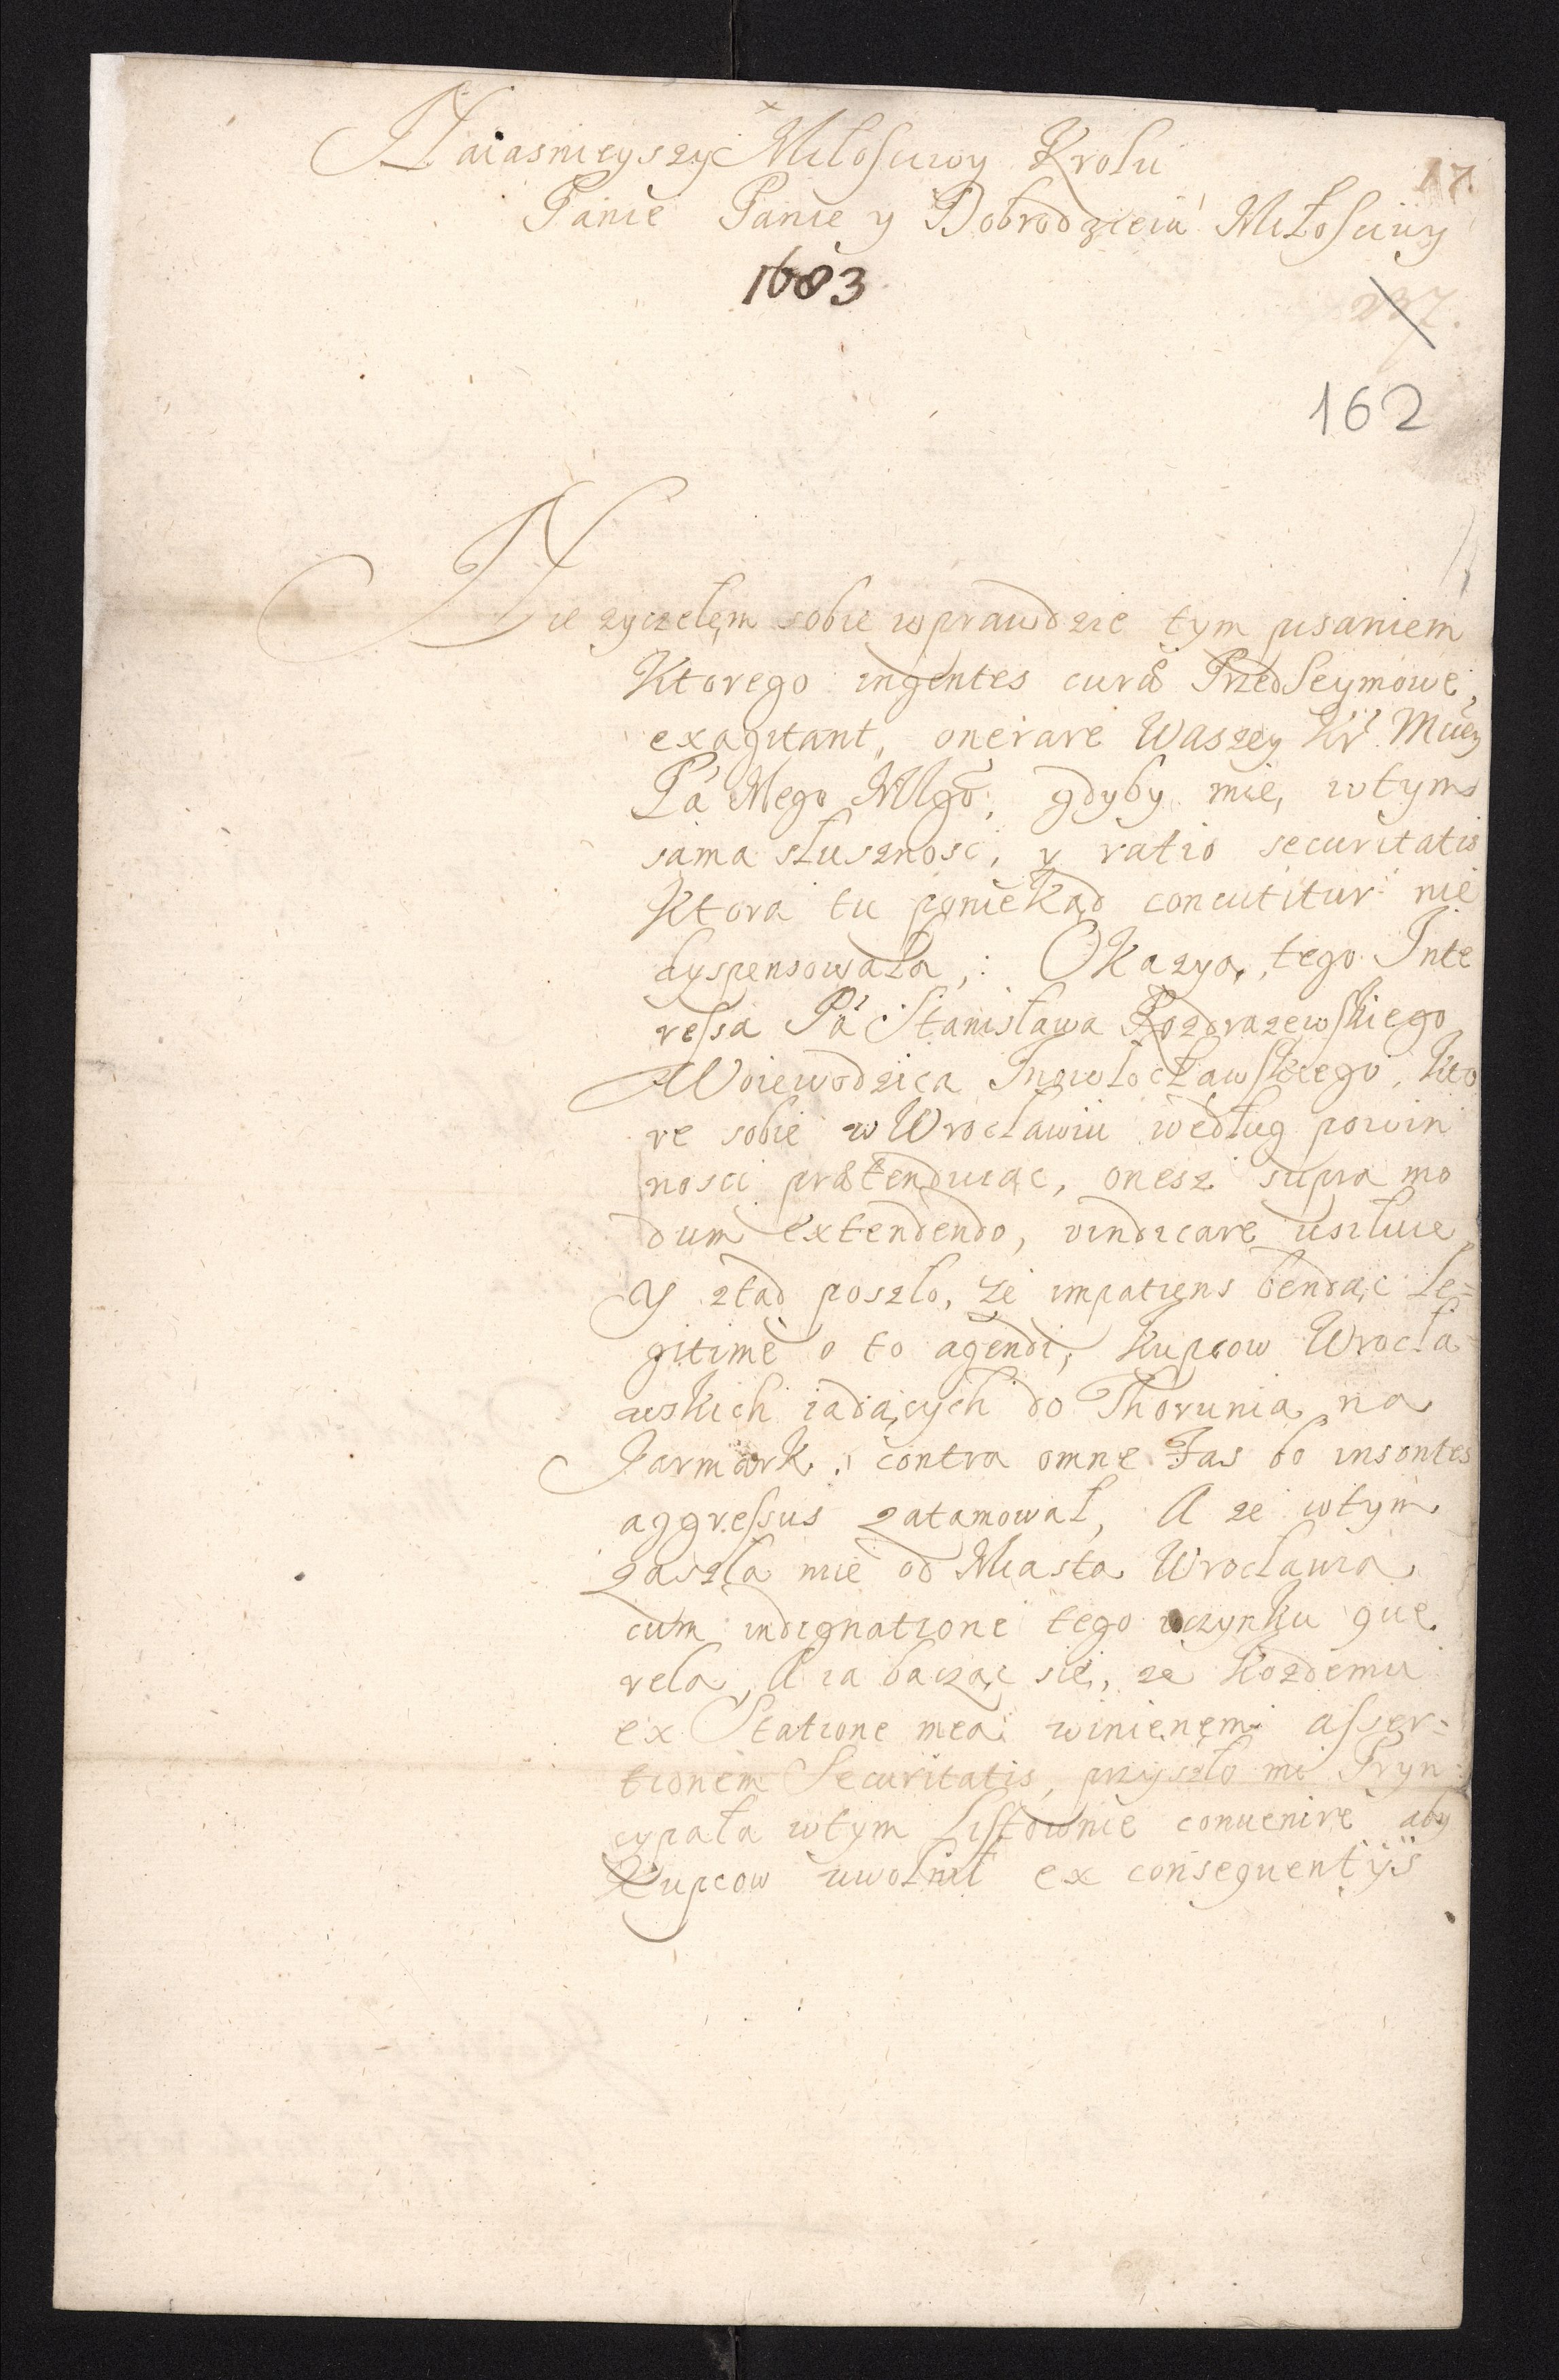 Naiasnieyszy Miłosciwy Krolu
17.
Panie Panie y Dobrodzieiu Miłosciwy
1683
237.
162
Nie zyczełęm sobie wprawdzie tym pisaniem
Ktorego ingentes curæ PrzedSeymowe,
exagitant, onerare Waszey Kr Mciey
Pa Mego Mlgo, gdyby mie, wtym
sama słusznosc, y ratio securitatis
Ktora tu poniekąd concutitur nie
dyspensowała: Okazya, tego Inte
ressa Pa Stanisława Rozdrazewskiego
Woiewodzica Inowłocławskiego, kto
re sobie w Wrocławiu według powin
nosci prætenduiąc, onesz supra mo
dum extendendo, vindicare usiłuie
y ztad poszło, ze impatiens bendąc le=
gitime o to agendi, Kupcow Wrocła=
wskich iadących do Thorunia na
Jarmark, contra omne Fas bo insontes
aggressus zatamował, A ze wtym
zaszła mie od Miasta Wrocławia
cum indignatione tego uczynku que
rela, A ia bacząc się, ze kozdemu
ex Statione mea winienęm asser=
tionem Securitatis, przyszło mi Pryn=
cypała wtym Listownie convenire aby
Kupcow uwolnił ex consequentijs